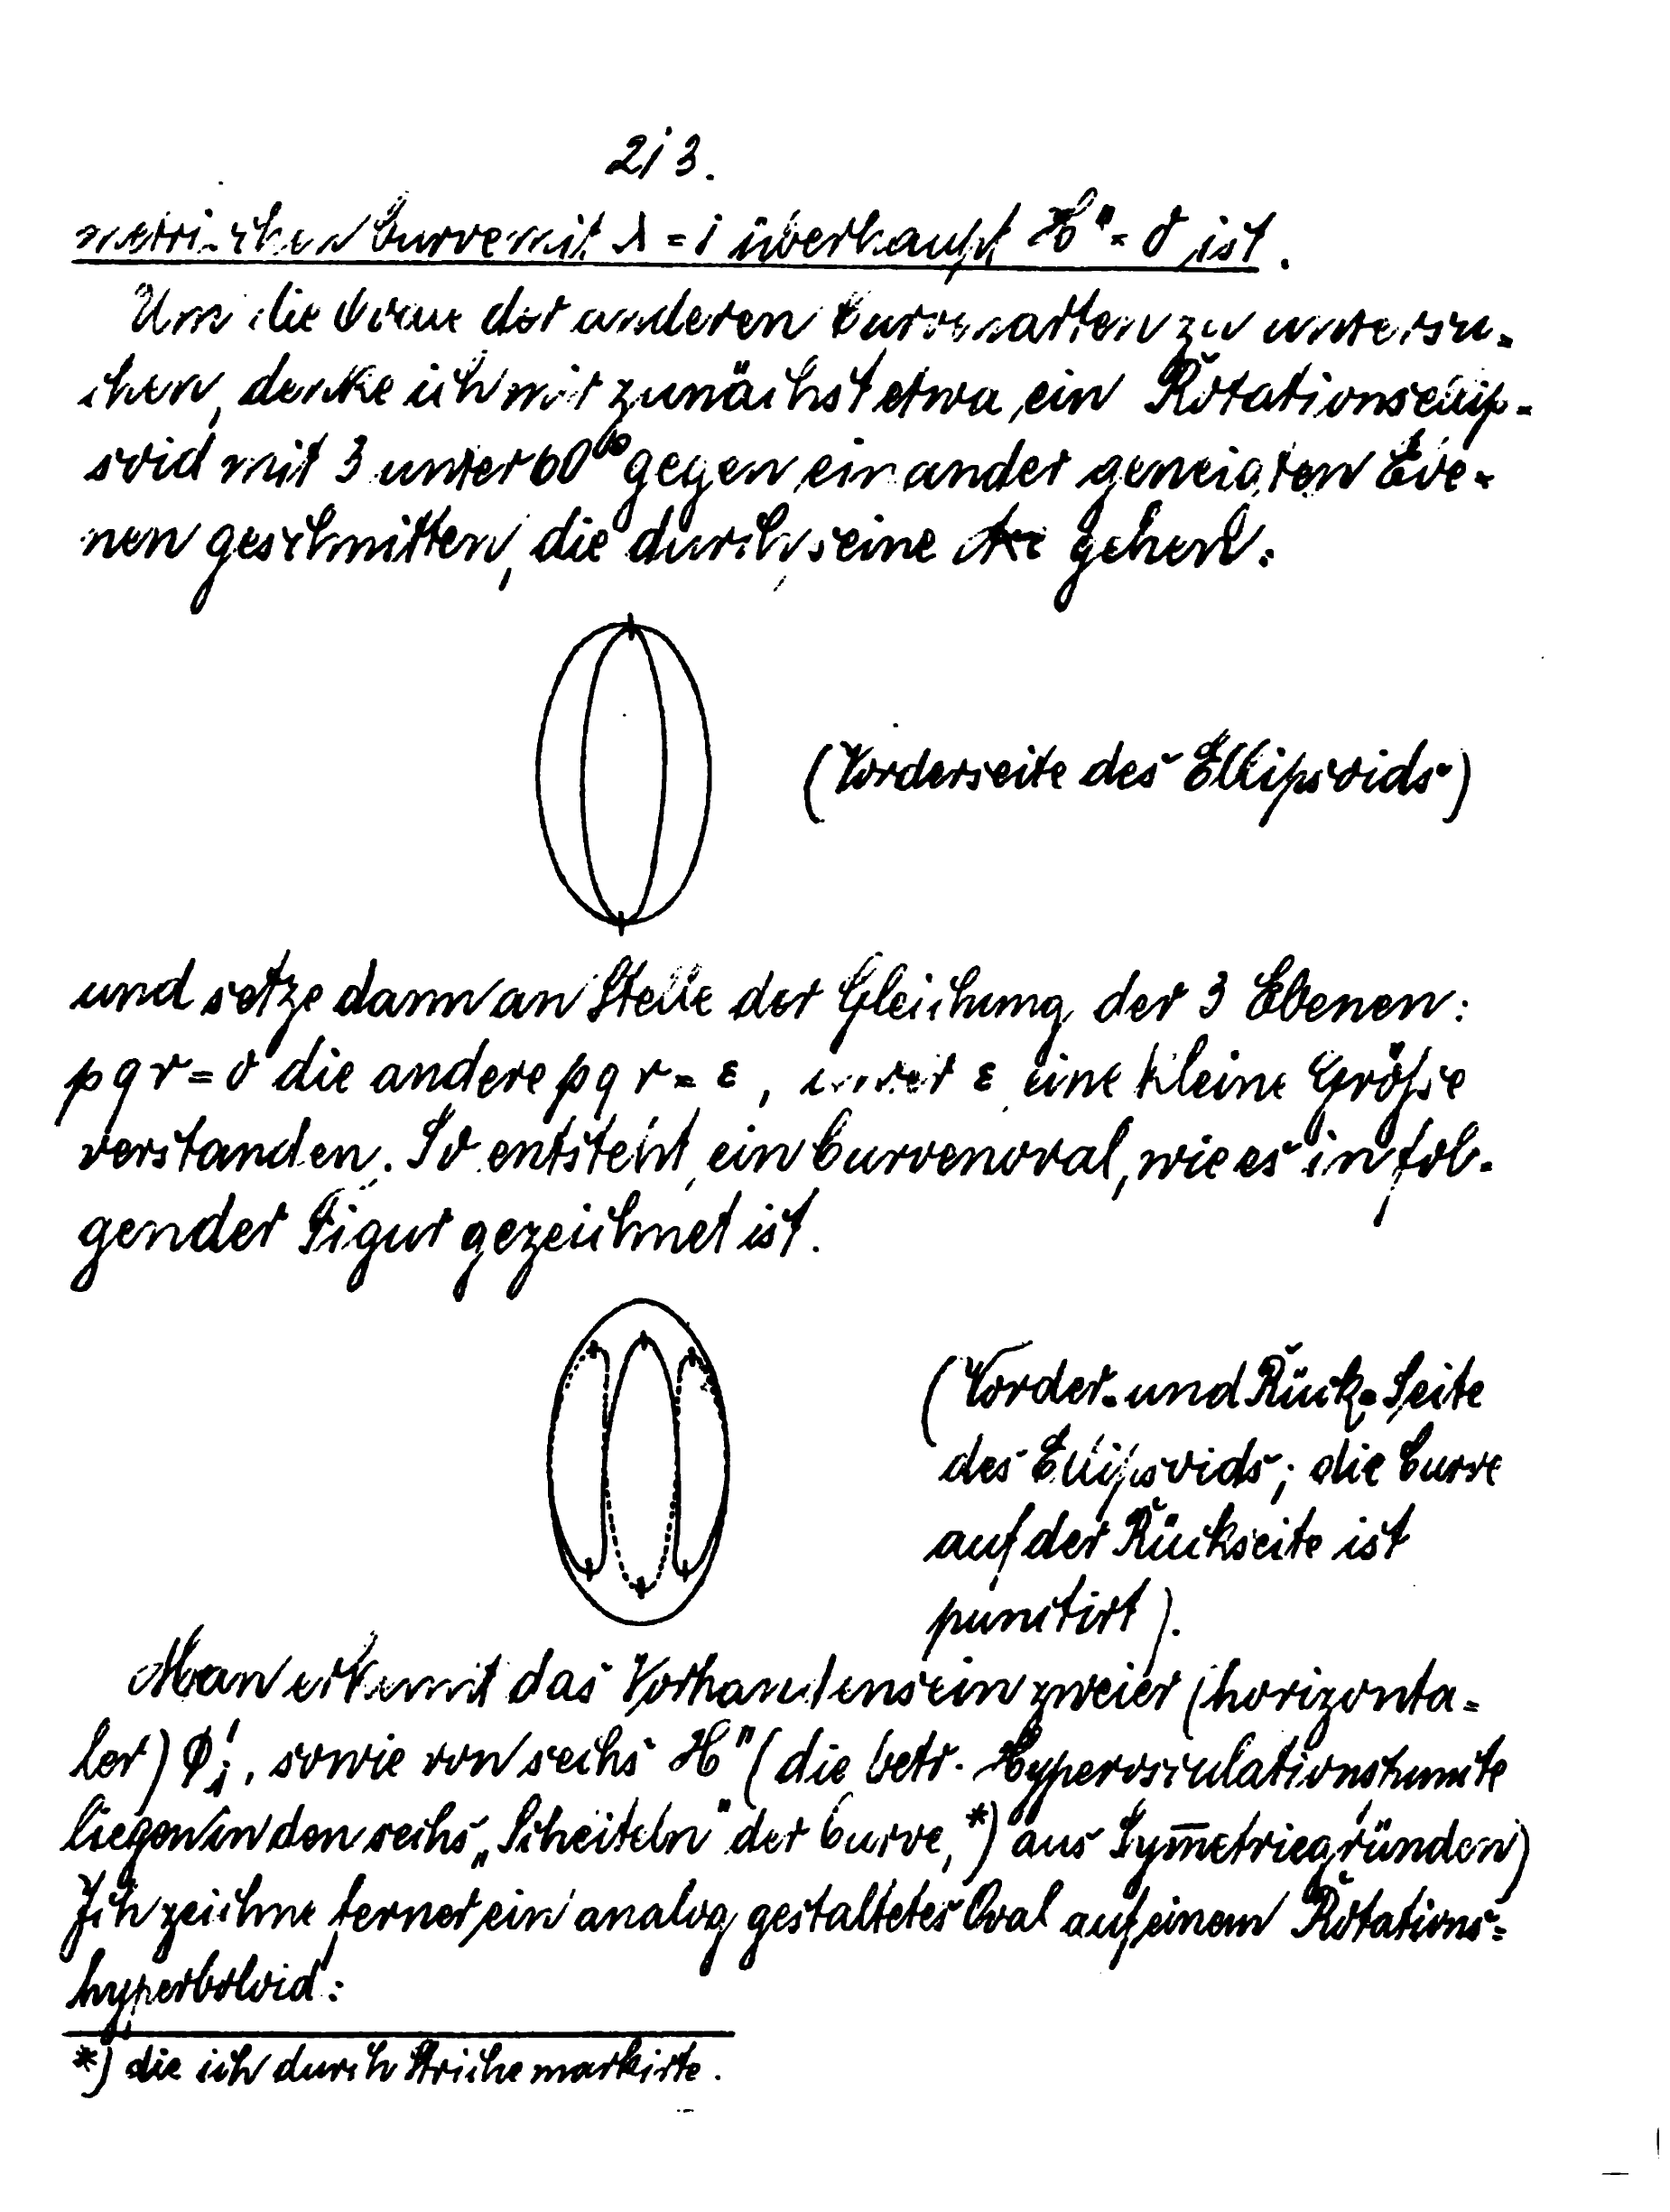 213.
metrischen Curve mit λ = 1 überhaupt H" = 0 ist.
Um die der anderen Curvenarten zu untersu-
chen, denke ich mir zunächst etwa ein Rotationsellip-
soid mit 3 unter 60° gegen einander geneigten Ebe-
nen geschnitten, die durch seine Axe gehen:
(Vorderseite des Ellipsoids)
und setze dann an Stelle der Gleichung der 3 Ebenen:
pqr = 0 die andere pqr = ε, unter ε eine kleine Größe
verstanden. So entsteht ein Curvenoval, wie es in fol-
gender Figur gezeichnet ist.
(Vorder- und Rück-Seite
des Ellipsoids; die Curve
auf der Rückseite ist
punctirt).
Man erkennt das Vorhandensein zweier (horizonta-
ler) , sowie von sechs H" (die betr. Hyperosculationspuncte
liegen in den sechs „Scheiteln" der Curve,*) aus Sym̅etriegründen)
Ich zeichne ferner ein analog gestaltetes Oval auf einem Rotations-
hyperboloid:
*) die ich durch Striche markirte.